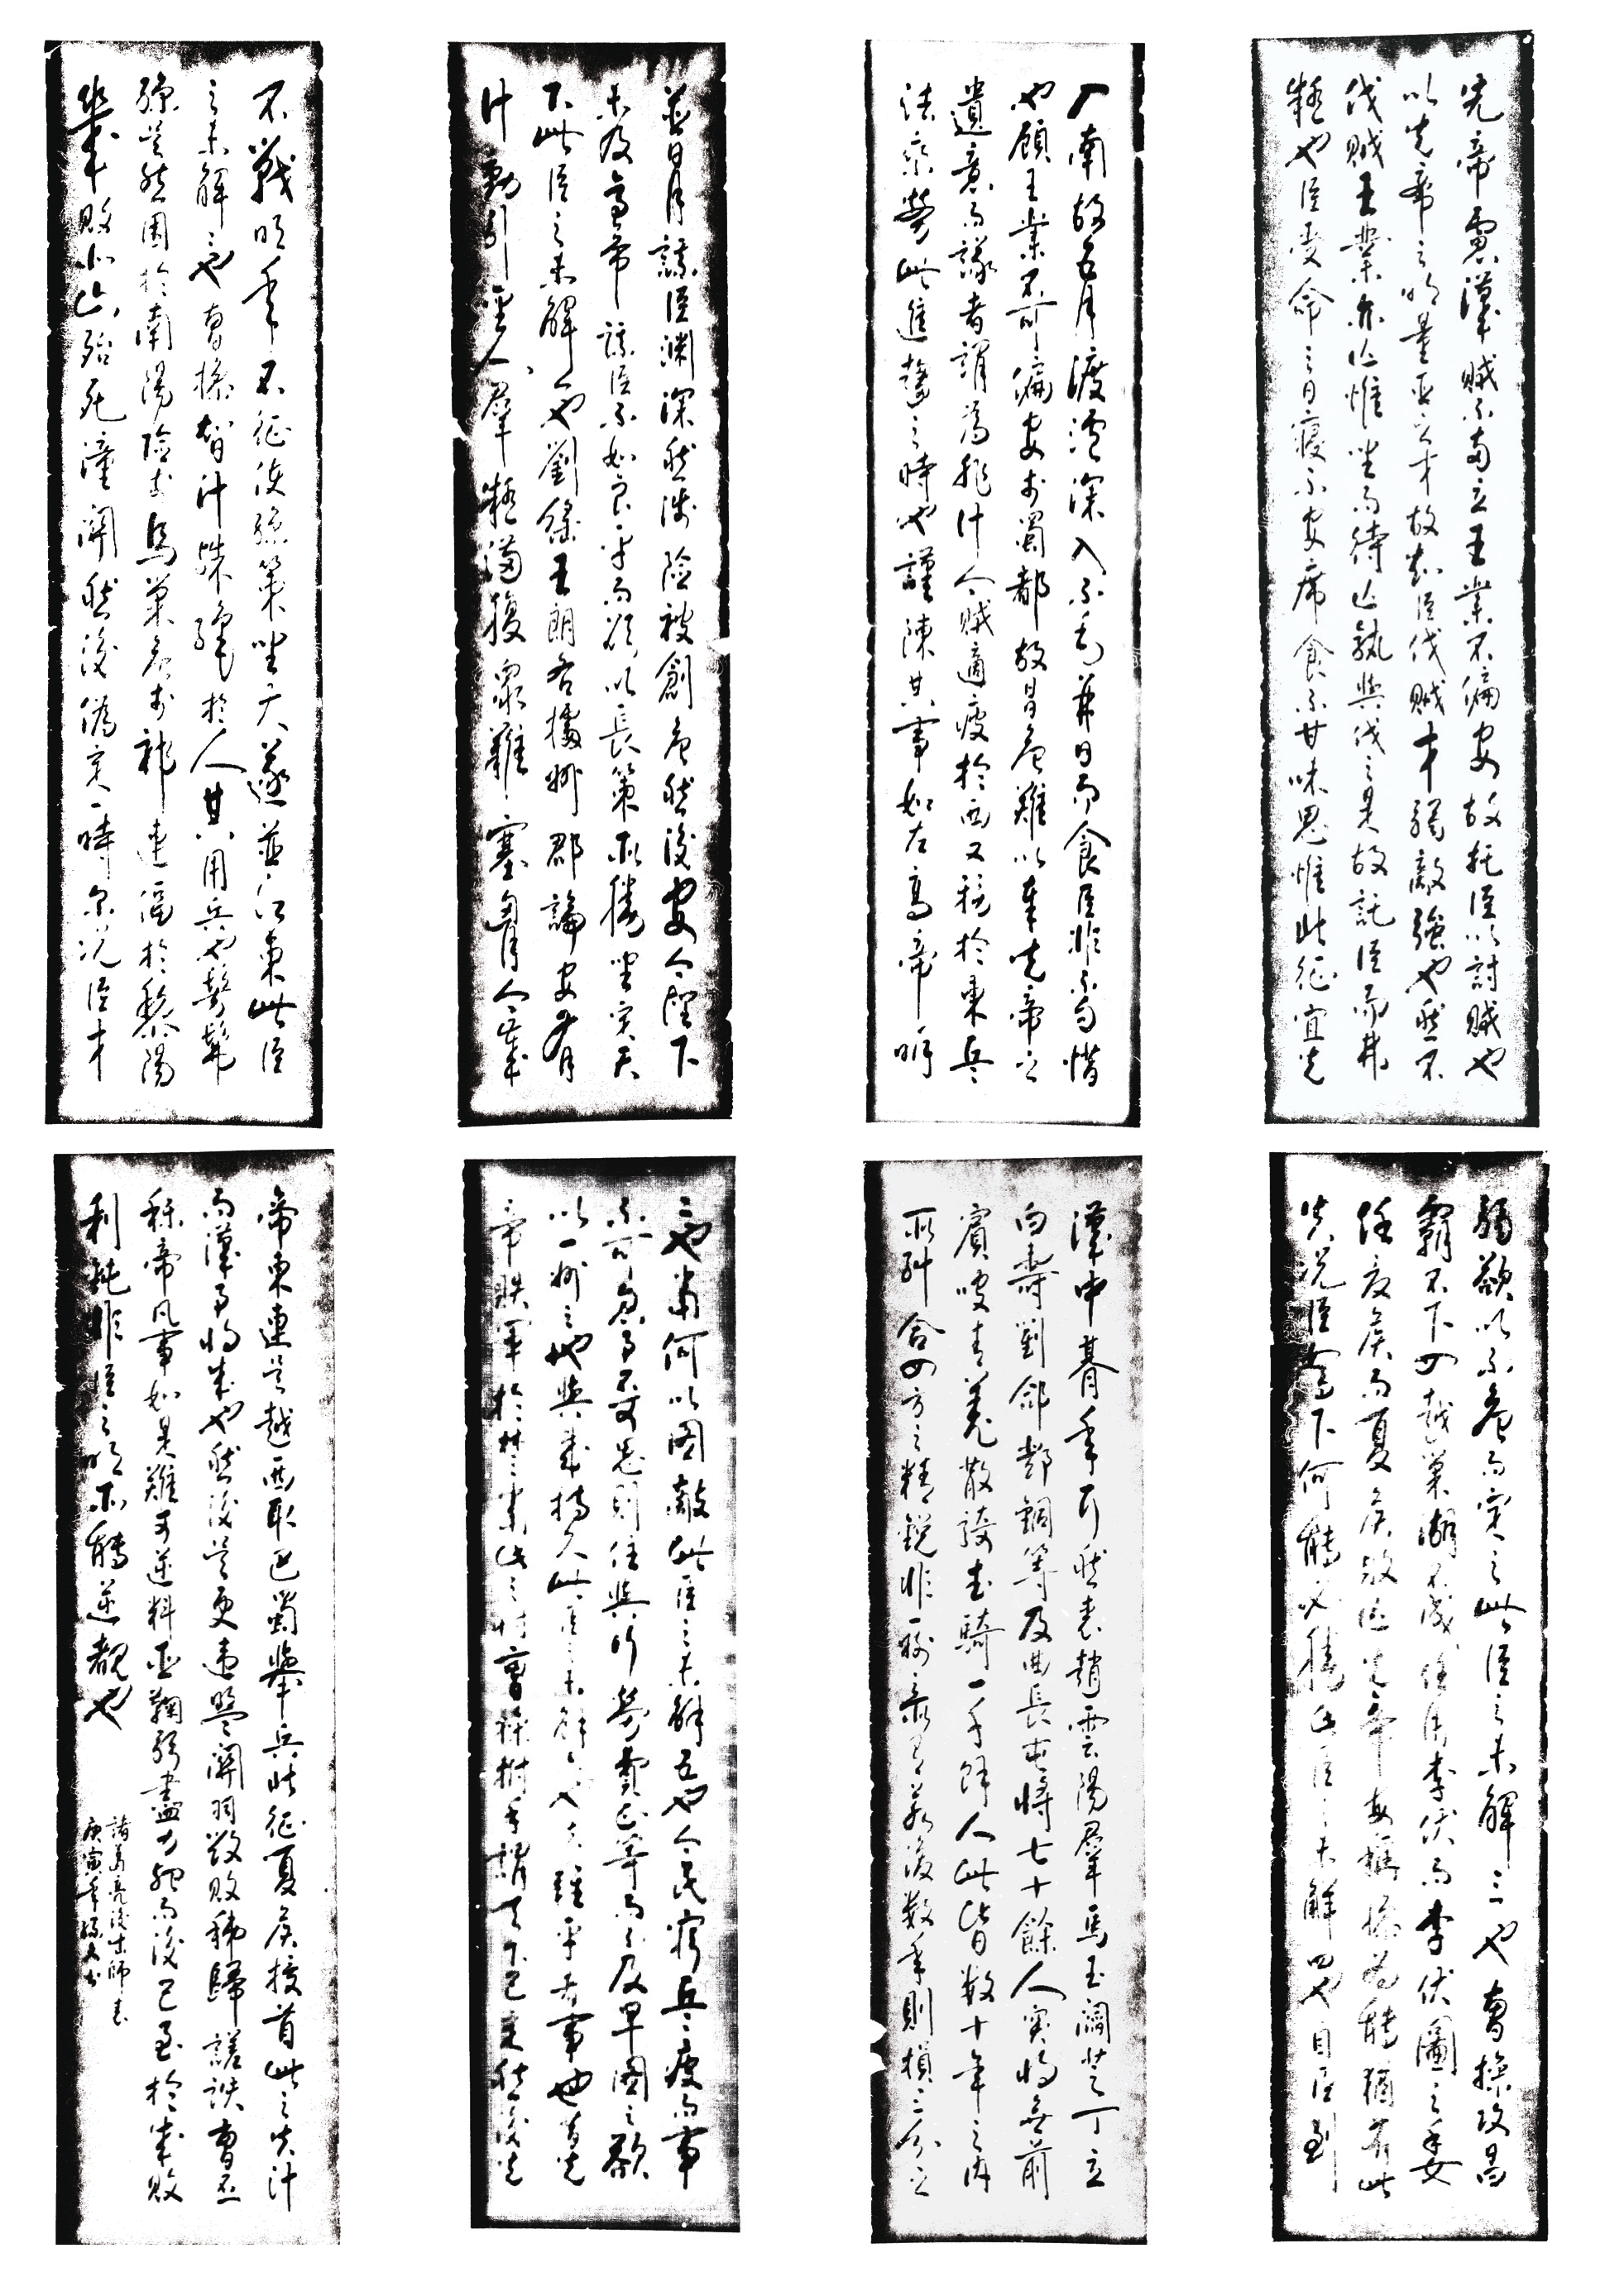 先帝慮漢賊不兩立王業不偏安故托臣以討賊也
以先帝之明量臣之才故知臣伐賊才弱敵強也然不
伐賊王業亦亡惟坐而待亡孰與伐之是故託臣而弗
疑也臣受命之日寢不安席食不甘味思惟北征宜先
入南故五月渡瀘深入不毛并日而食臣非不自惜
也顧王業不可偏安於蜀都故冒危難以奉先帝之
遺意而議者謂為非計今賊適疲於西又務於東兵
法乘勞此進趨之時也謹陳其事如左高帝明
並日月謀臣淵深然涉險被創危然後安今陛下
未及高帝謀臣不如良平而欲以長策取勝坐定天
下此臣之未解一也劉繇王朗各據州郡論安言
計動引聖人群疑滿腹眾難塞胸今歲
不戰明年不征使孫策坐大遂並江東此臣
之未解二也曹操智計殊絕於人其用兵也髣髴
孫吳然困於南陽險於烏巢危於祁連逼於黎陽
幾敗北山殆死潼關然後偽定一時尔況臣才
弱欲以不危而定之此臣之未解三也曹操五攻昌
霸不下四越巢湖不成任用李伏而李伏圖之委
任夏侯而夏侯敗亡先帝每稱操為能猶有此
失況臣駑下何能必勝此臣之未解四也自臣到
漢中其間期年耳然喪趙雲陽群馬玉閻芝丁立
白壽劉郃鄧銅等及曲長屯將七十餘人突將無前
賓叟青羌散騎武騎一千餘人此皆數十年之內
所糾合四方之精銳非一州之所有若復數年則損三分之
二也當何以圖敵此臣之未解五也今民窮兵疲而事
不可息事不可息則住與行勞費正等而不及早圖之欲
以一州之地與賊持久此臣之未解六也夫難平者事也昔先
帝敗軍於楚當此之時曹操拊手謂天下已定然後先
帝東連吳越西取巴蜀舉兵北征夏侯授首此之失計
而漢事將成也然後吳更違盟關羽毀敗秭歸蹉跌曹丕
稱帝凡事如是難可逆料臣鞠躬盡力死而後已至於成敗
利鈍非臣之明所能逆覩也
諸葛亮後出師表
庚寅年